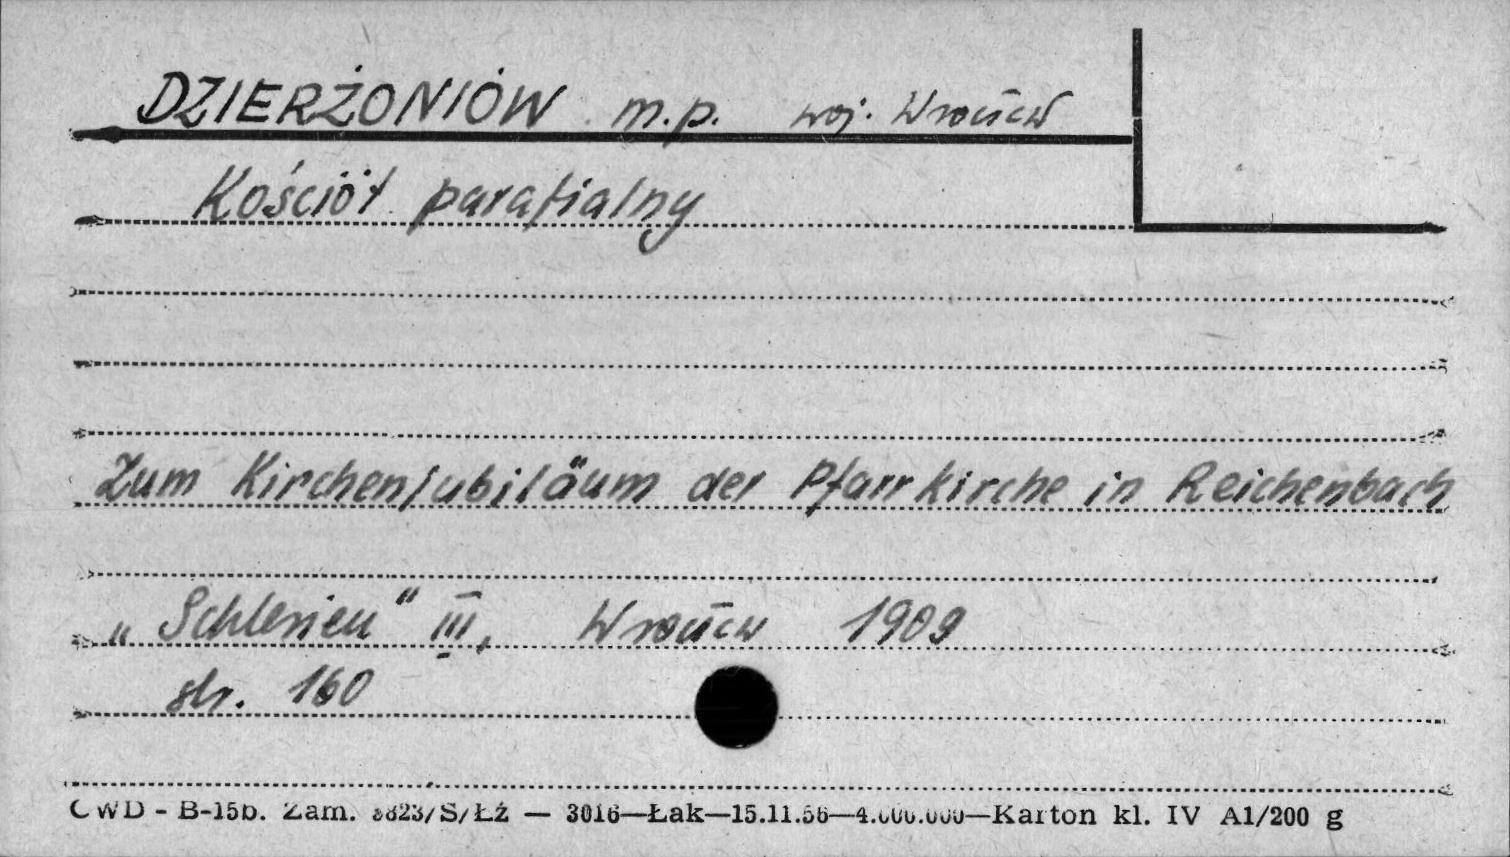 DZIERŻONIÓW m.p. woj. Wrocław
Kościół parafialny
Zum Kirchenjubiläum der Pfarrkirche in Reichenbach
„Schlesien" III, Wrocław 1909
str. 160
CWD - B-15b. Zam. 8823/S/Łź — 3016—Łak—15.11.56—4.000.000—Karton kl. IV A1/200 g